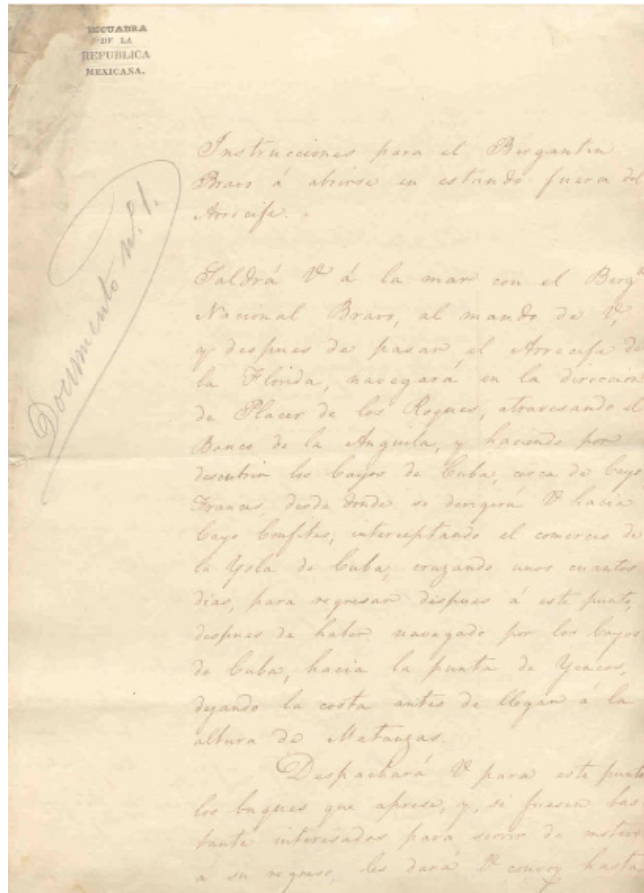 ESCUADRA
DE LA
REPUBLICA
MEXICANA.
Documento nº. 1.
Instrucciones para el Bergantin
Bravo á abrirse en estando fuera del
Arrecife.
Saldrá V. á la mar con el Bergn
Nacional Bravo, al mando de V,
y despues de pasar el Arrecife de
la Florida, navegará en la direccion
de Placer de los Roques, atravesando el
Banco de la Anguila, y haciendo por
descubrir los Cayos de Cuba, cerca de Cayo
Frances, desde donde se derigerá V hacia
Cayo Confites, interceptando el comercio de
la Ysla de Cuba, cruzando unos cuantos
dias, para regresar dispues á este punto,
despues de haber navegado por los Cayos
de Cuba, hacia la punta de Ycacos,
dejando la costa antes de llegar á la
altura de Matanzas.
Despachará V para este punto
los buques que aprese, y, si fuesen bas
tante interesados para servir de motivo
a su regreso, les dará V convoy hasta